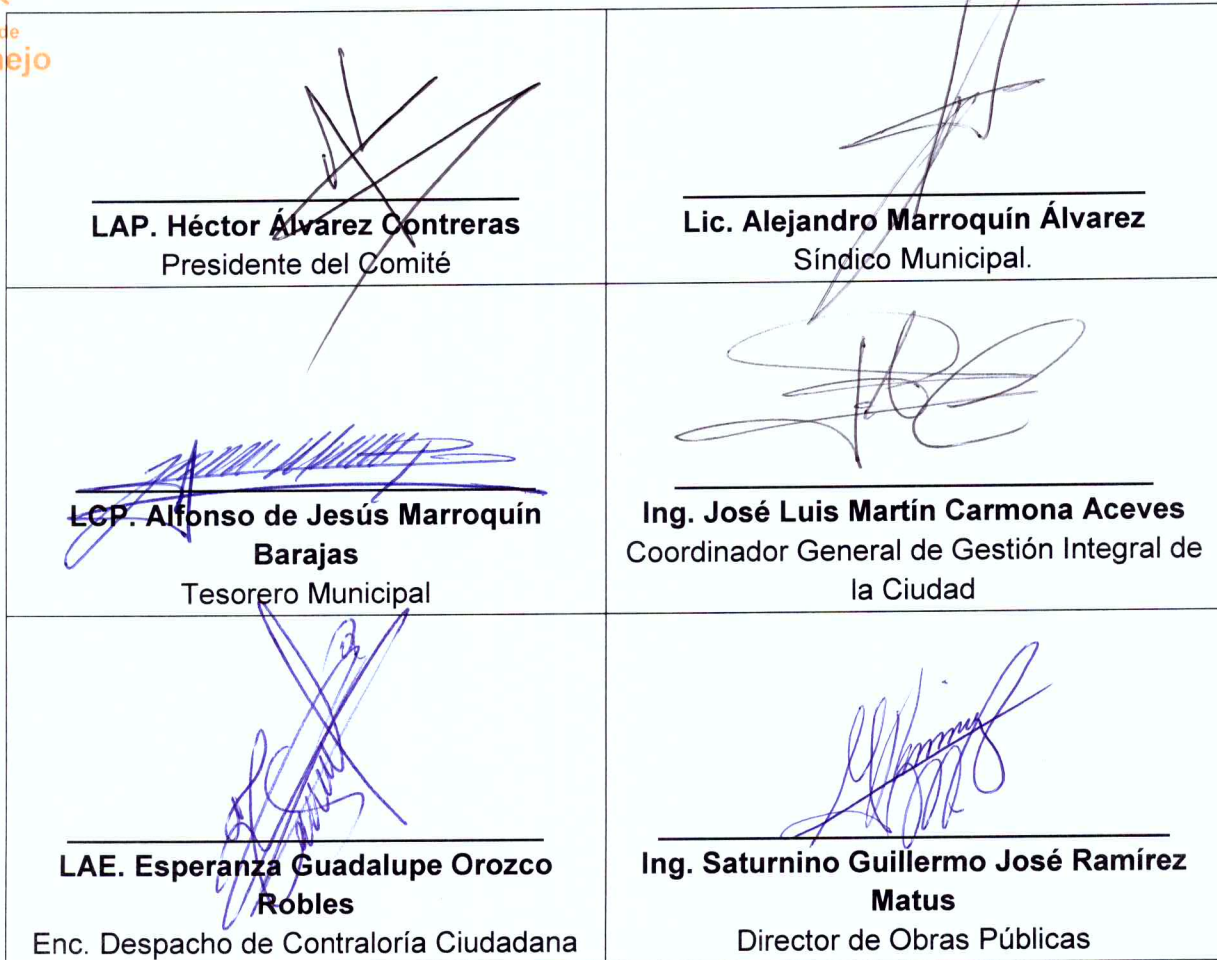 de
ejo
LAP. Héctor Álvarez Contreras
Presidente del Comité
Lic. Alejandro Marroquín Álvarez
Síndico Municipal.
LCP. Alfonso de Jesús Marroquín
Barajas
Tesorero Municipal
Ing. José Luis Martín Carmona Aceves
Coordinador General de Gestión Integral de
la Ciudad
LAE. Esperanza Guadalupe Orozco
Robles
Enc. Despacho de Contraloría Ciudadana
Ing. Saturnino Guillermo José Ramírez
Matus
Director de Obras Públicas